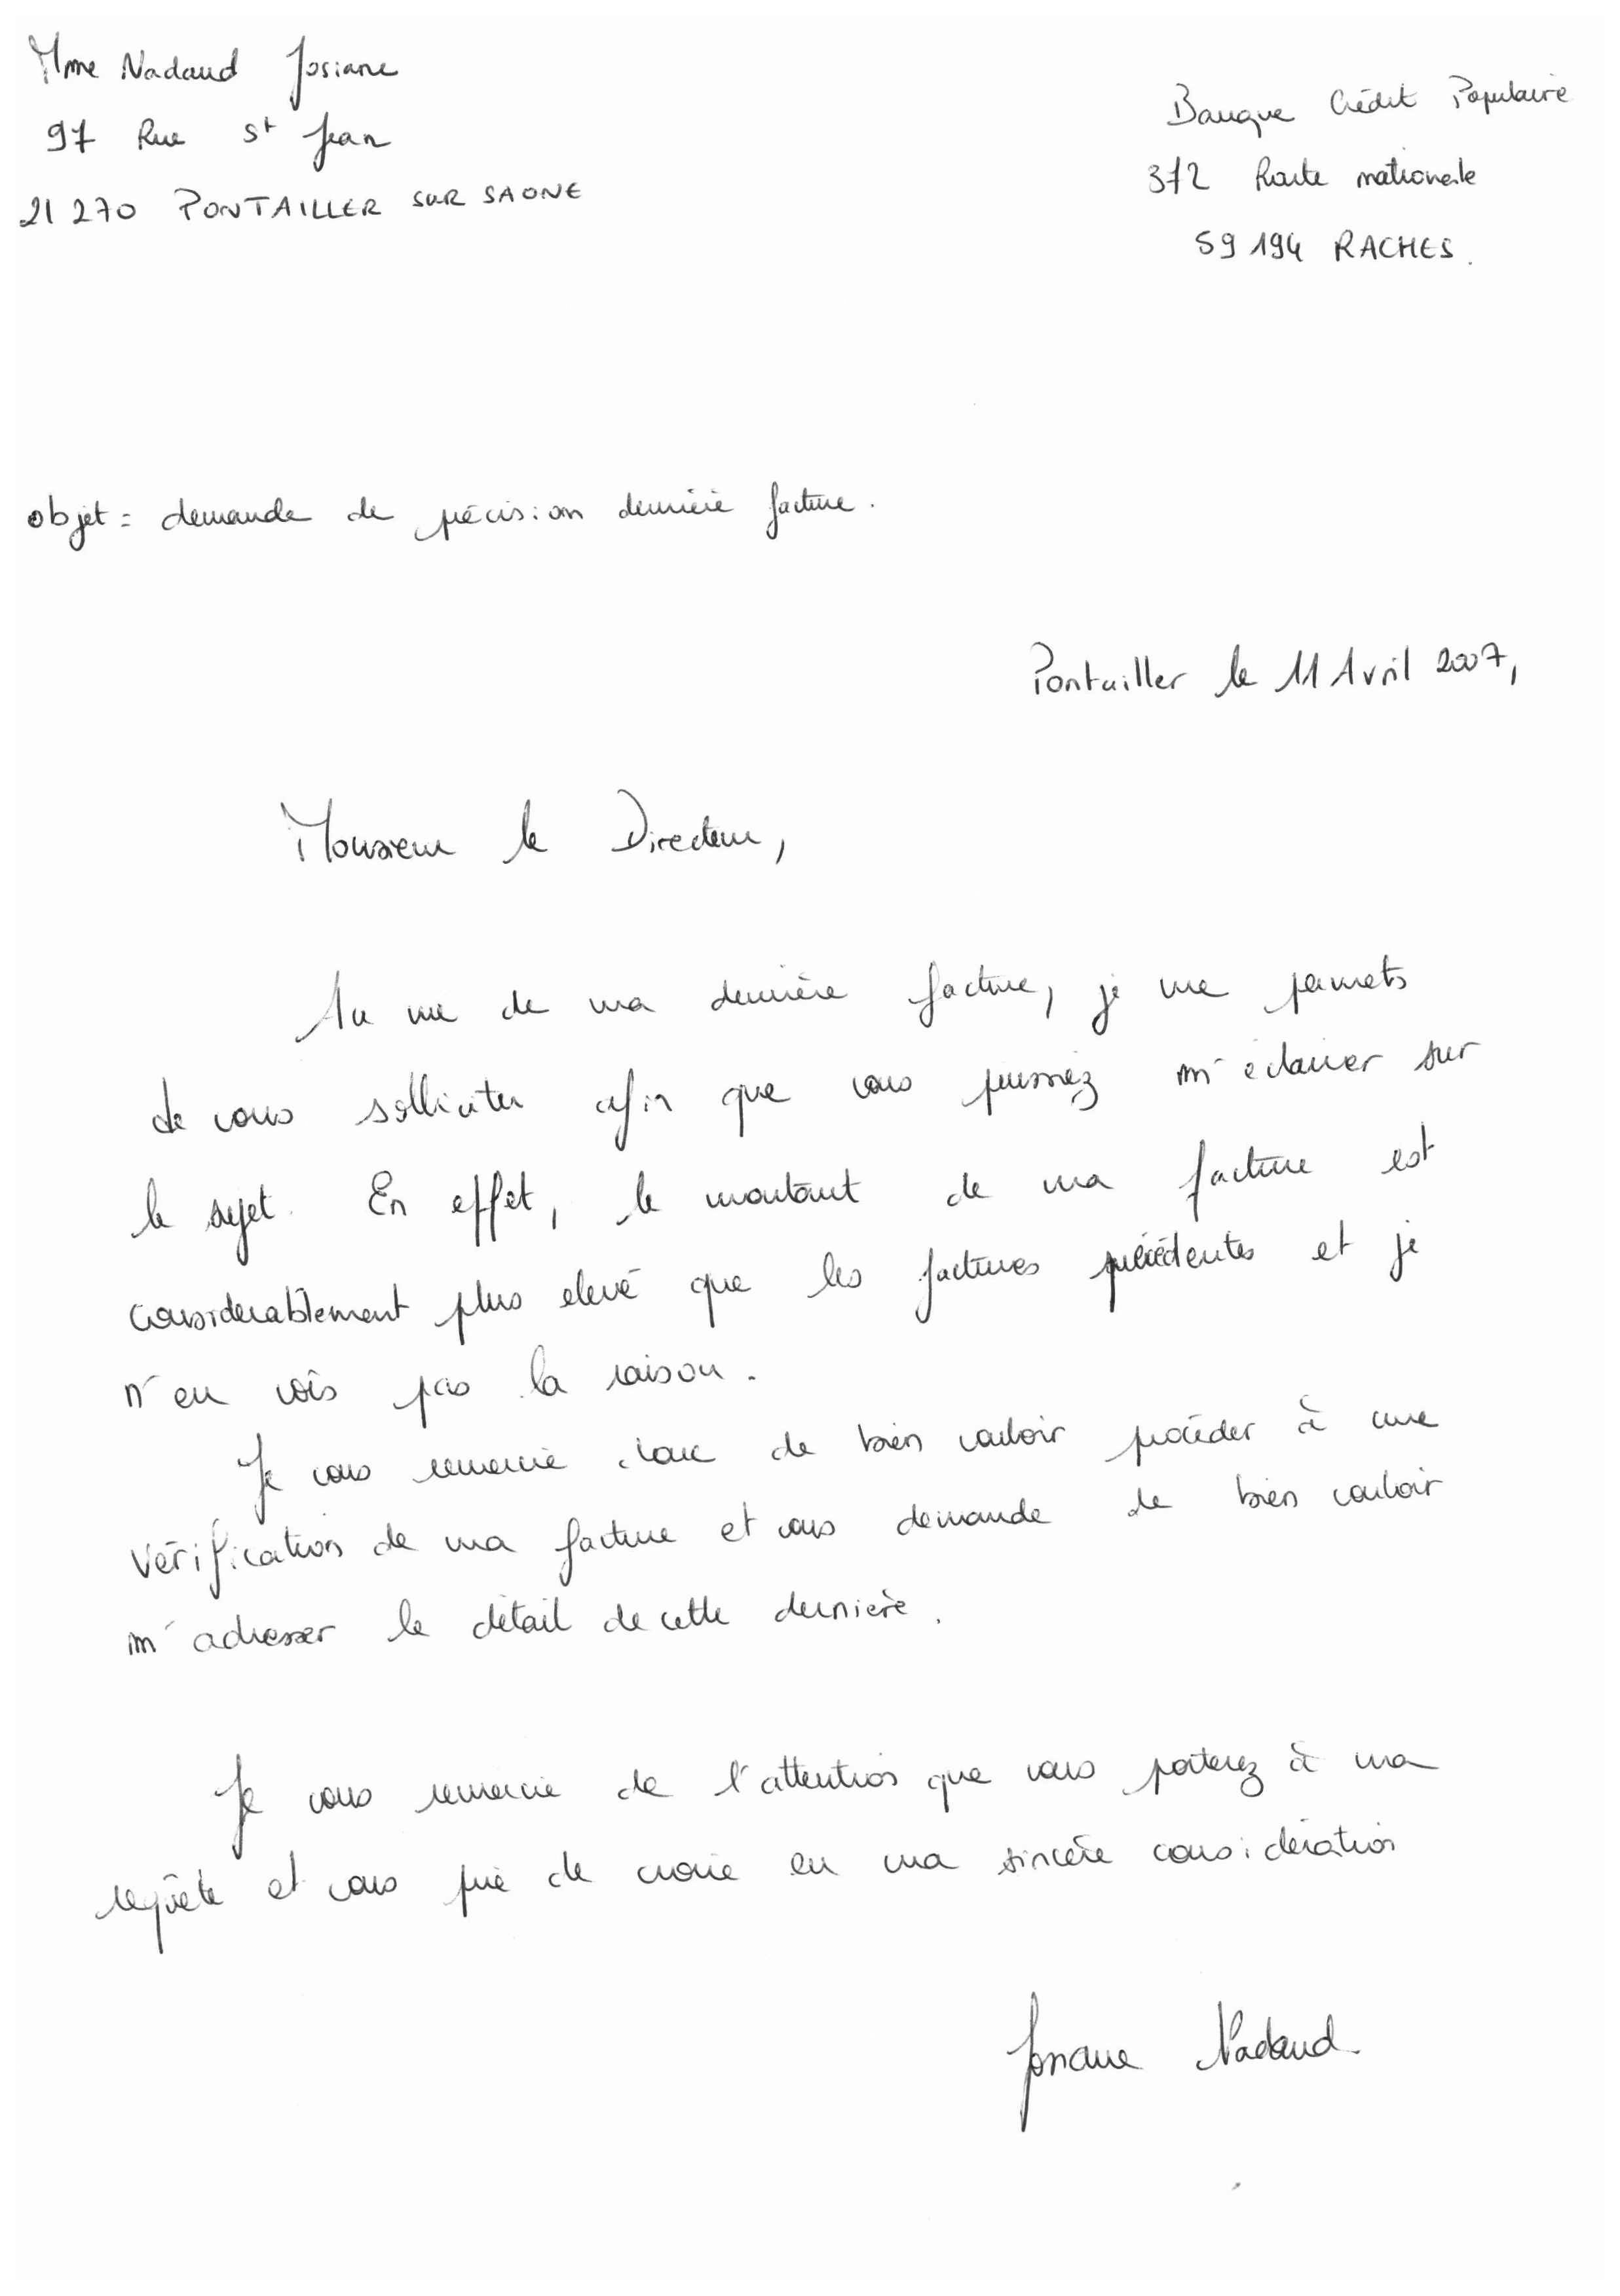 Mme Nadaud Josiane
97 Rue St Jean
21 270 PONTAILLER SUR SAONE
Banque Crédit Populaire
372 Route nationale
59 194 RACHES.
objet = demande de précision dernière facture.
Pontailler le 11 Avril 2007,
Monsieur le Directeur,
Au vue de ma dernière facture, je me permets
de vous solliciter afin que vous puissiez m'éclairer sur
le sujet. En effet, le montant de ma facture est
considerablement plus elevé que les factures précédentes et je
n'en vois pas la raison.
Je vous remercie donc de bien vouloir procéder à une
vérification de ma facture et vous demande de bien vouloir
m'adresser le détail de cette dernière.
Je vous remercie de l'attention que vous porterez à ma
requête et vous prie de croire en ma sincère considération
Josiane Nadaud